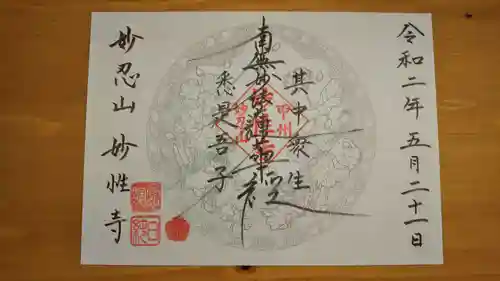 令和二年五月二十一日
其中衆生
南無妙法蓮華経
悉是吾子
甲州
妙忍山
妙忍山 妙性寺